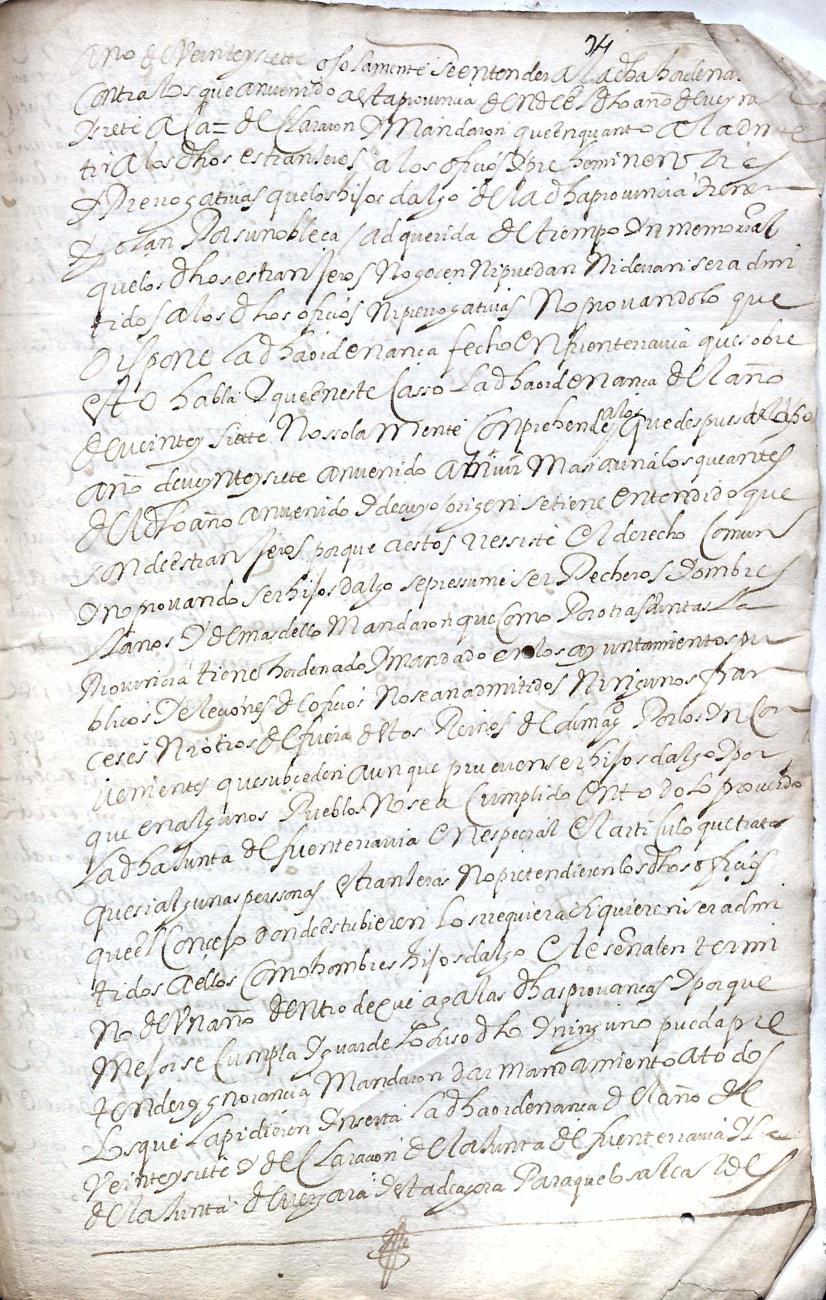 34
Año de Veinteysiete o solamente se entender a la dha hordenan
Contra los que an venido a esta provincia dende el dho año de veynte
y siete a ca = declararon y Mandaron que en quanto a la dmi
tir a los dhos estranjeros a los oficios y pre heminenzias
y Prerrogativas que los hijos dalgo de la dha provincia tienen
y gozan Por su nobleça adquerida de tiempo ynmemorial
que los dhos estranjeros No gocen Ni puedan Ni devan ser admi
tidos a los dhos oficios Ni prerrogativas No provandolo que
Dispone la dha ordenança fecho en fuenterravia que sobre
esto habla y que en este Casso la dha ordenança del año
de veinte y siete No ssolamente Comprehende a los que despues del dho
año de veynteysiete an venido a bivir Mas aun a los que antes
del dho año an venido y de cuyo origen se tiene entendido que
son de estranjeros porque a estos rressiste el derecho Comun
y no provando ser hijos dalgo se pressume ser Pecheros y ombres
llanos y demas dello Mandaron que Como Por otras Juntas La
Provincia tiene hordenado y mandado en los ayuntamientos pu
blicos y eleciones de oficios No sean admitidos Ningunos fran
ceses Ni otros de fuera de estos Reinos de su magd Por los yncon
venientes que subceden aunque prueven ser hijos dalgo y por
que en algunos Pueblos No se a Cumplido en todo lo proveido
La dha Junta de fuenterravia en especial el articulo que trata
que si algunas perssonas estranjeras No pretendieren los dhos oficios
que el Concejo donde estubieren los rrequiera si quieren ser admi
tidos a ellos Como hombres hijos dalgo e le señalen termi
no de Un año dentro de que agalas dhas provanças y porque
Mejor se Cumpla y guarde lo suso dho y ninguno pueda pre
tender ygnorancia Mandaron dar mandamiento a todos
Los que la pidieren ynserta la dha ordenança del año de
Veinteysiete y declaracion de la Junta de fuenterravia y la
de la Junta de vergara desta dcagora Para que los alcaldes